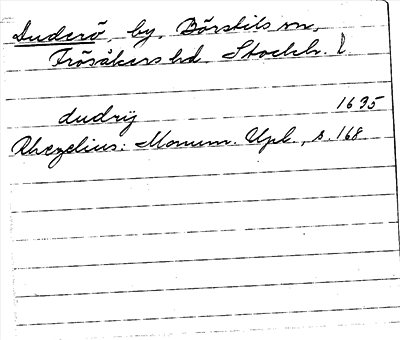 Duderö, by, Börstils sn,
Frösåkers hd. Stockh. l.
dudrÿ 1635
Rhezelius: Monum. Upl., s. 168.